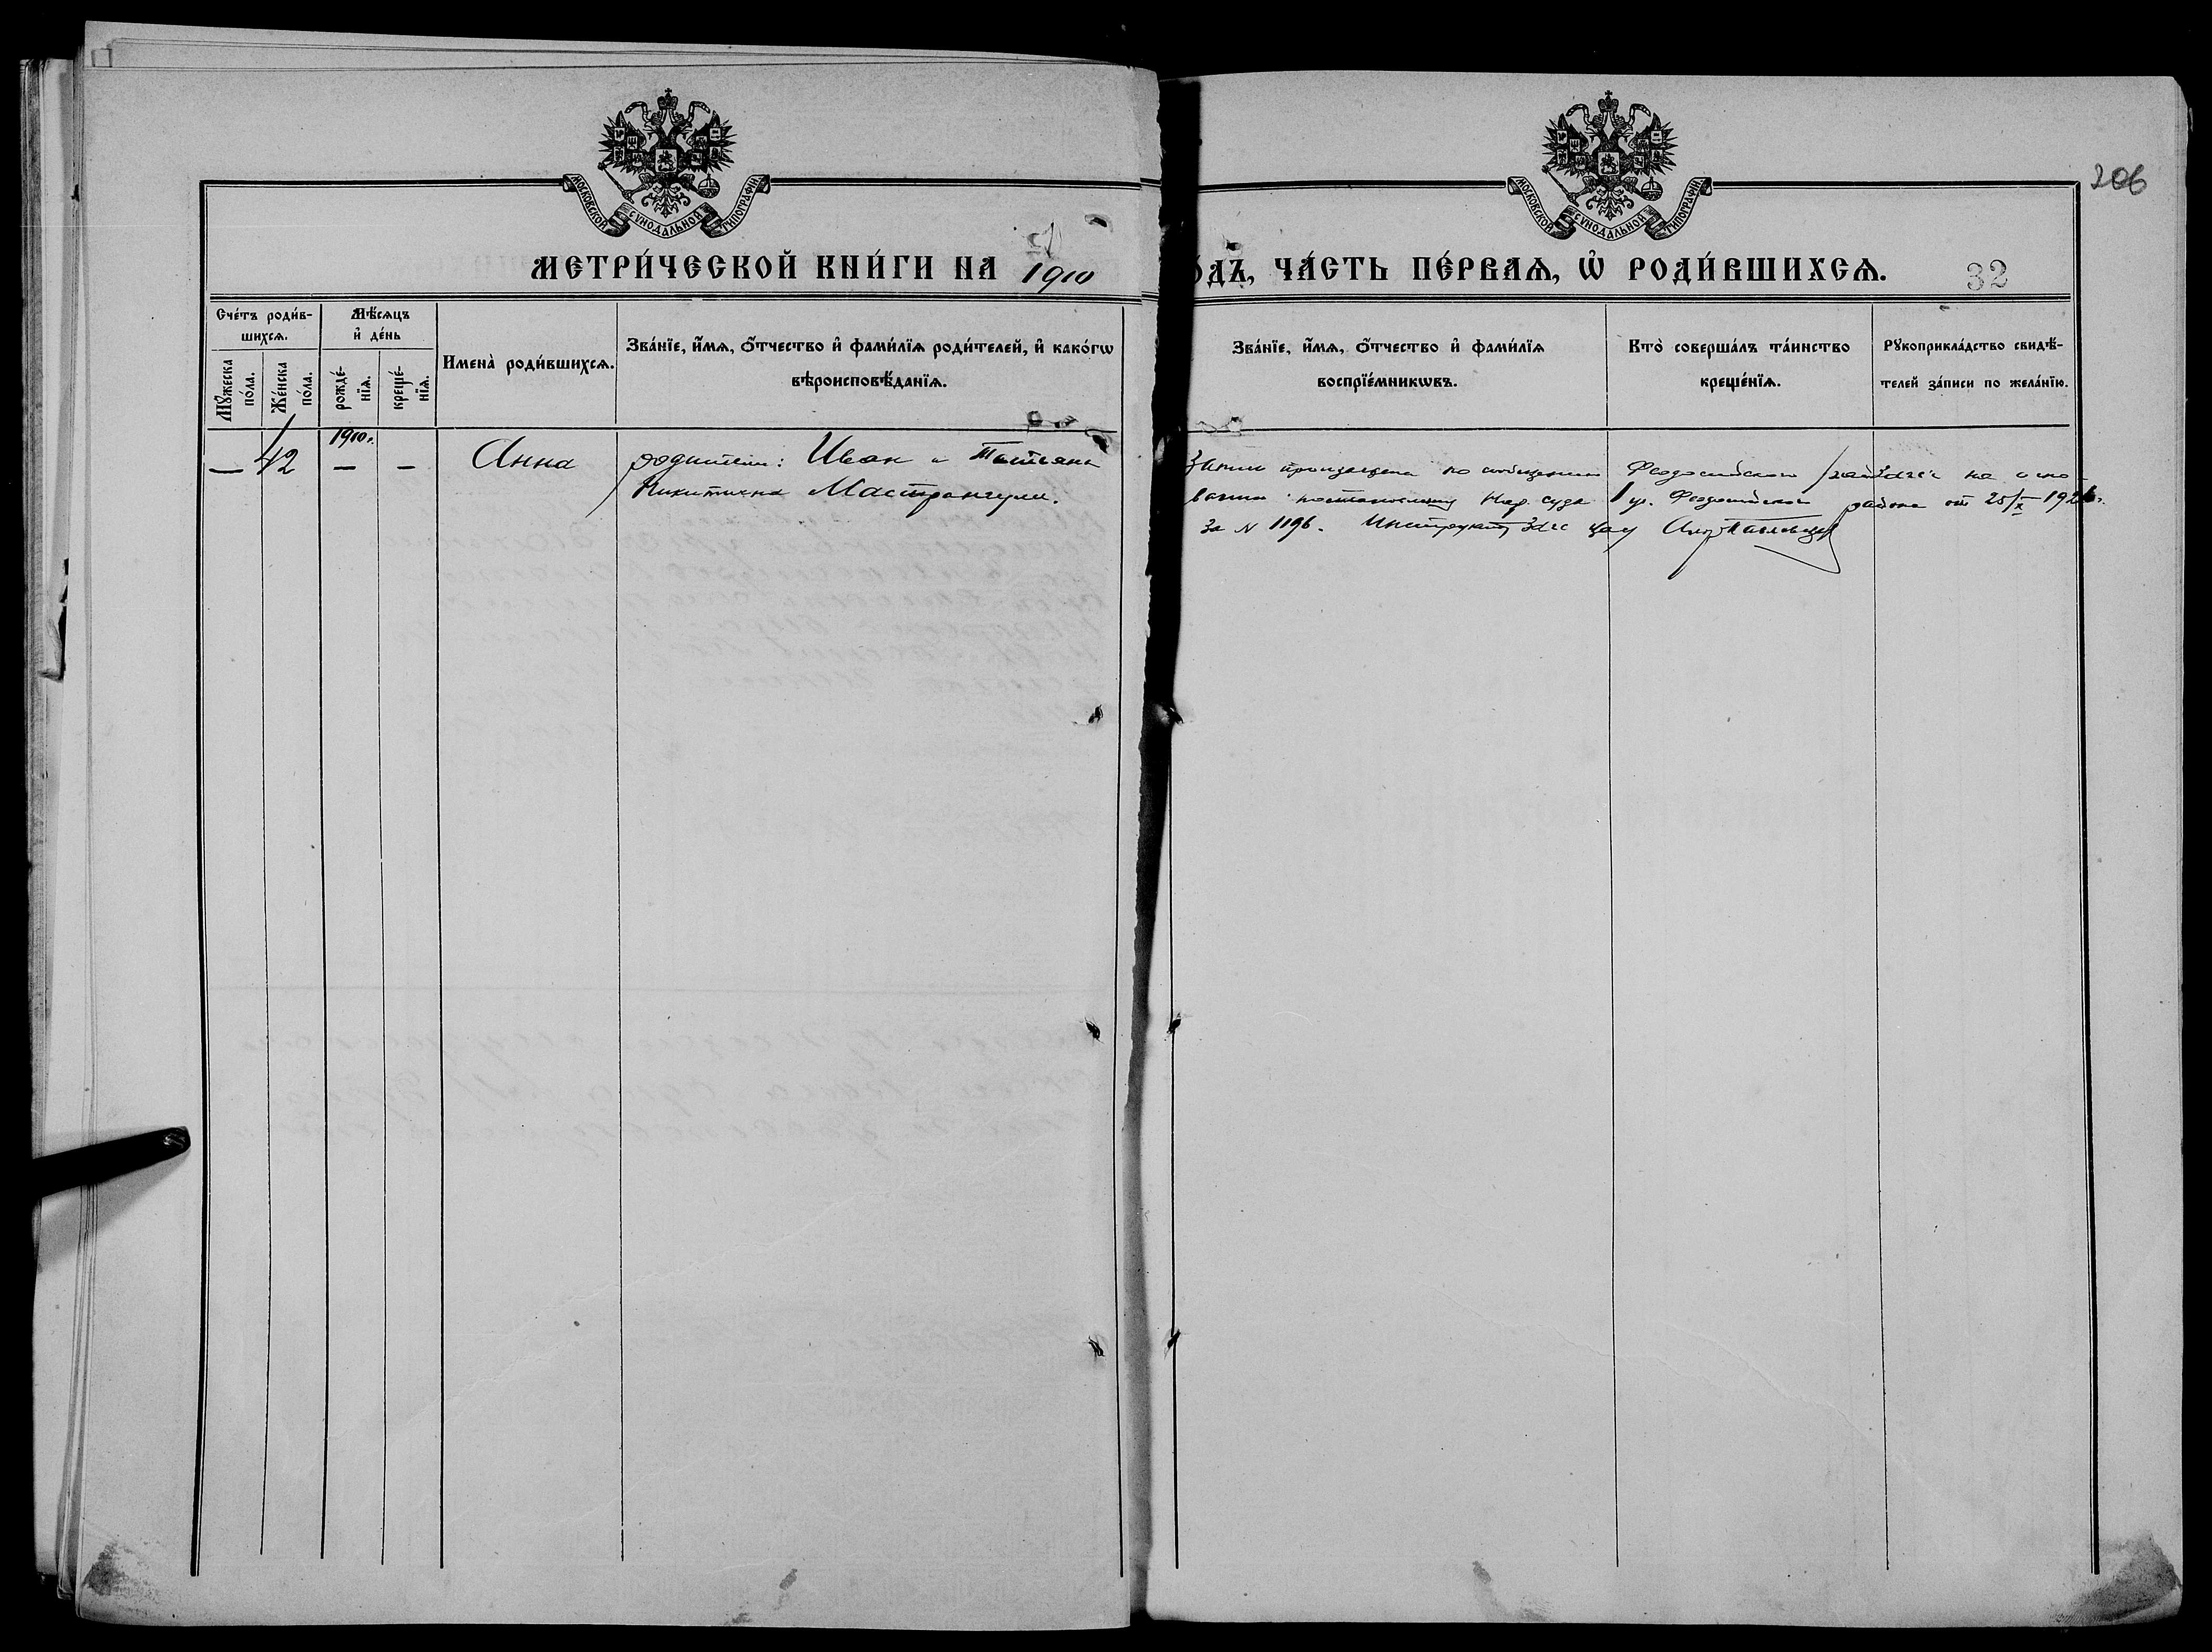 206
МОСКОВСКОЙ СѴНОДАЛЬНОЙ ТИПОГРАФІИ
МОСКОВСКОЙ СѴНОДАЛЬНОЙ ТИПОГРАФІИ
МЕТРИ́ЧЕСКОЙ КНИ́ГИ НА 1910
ОДЪ, ЧА́СТЬ ПЕ́РВАѦ, Ѡ҆ РОДИ́ВШИХСѦ.
32
Сче́тъ роди́в-
шихсѧ.
Мꙋ́жеска по́ла.
Же́нска по́ла.
Мѣ́сѧцъ
и҆ де́нь
рожде́-
нїѧ.
креще́-
нїѧ.
Имена̀ роди́вшихсѧ.
Зва́нїе, и҆́мѧ, ѻ҆́тчество и҆ фами́лїѧ роди́телей, и҆ како́гѡ
вѣроисповѣ́данїѧ.
Зва́нїе, и҆́мѧ, ѻ҆́тчество и҆ фами́лїѧ
воспрїе́мникѡвъ.
Кто̀ соверша́лъ та́инство
креще́нїѧ.
Рꙋкоприкла́дство свидѣ́-
телей за́писи по жела́нїю.
1910 г.
— 42 — — Анна родители: Иван и Татьяна
Никитична Мастрангули.
Запись произведена по сообщению Феодосийского райЗАГС'а на осно
вании постановления Нар. суда 1 уч. Феодосийского района от 25/X 1926 г.
За № 1196. Инструктор Загс